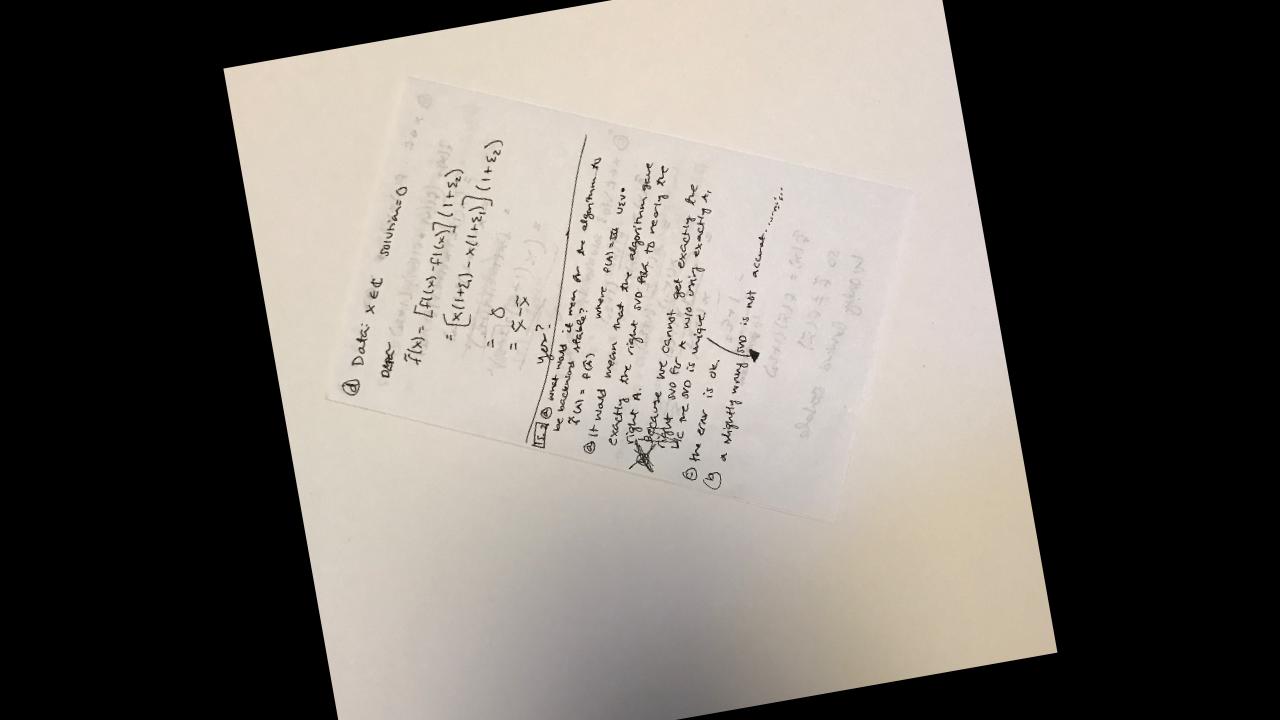 (d) Data: x ∈ ℂ solution = 0
f̃(x) = [fl(x) - fl(x)](1+ε₂)
= [x(1+ε₁) - x(1+ε₁)](1+ε₂)
= 0
= x̃ - x̃
yes?
15.2 (a) what would it mean for the algorithm to
be backward stable?
f̃(A) = f(Ã) where f(A) = UΣV*
(a) It would mean that the algorithm gave
exactly the right SVD for to nearly the
right A.
Because we cannot get exactly the
right SVD for A w/o using exactly A,
b/c the SVD is unique.
(c) the error is ok.
(b) a slightly wrong SVD is not accurat......